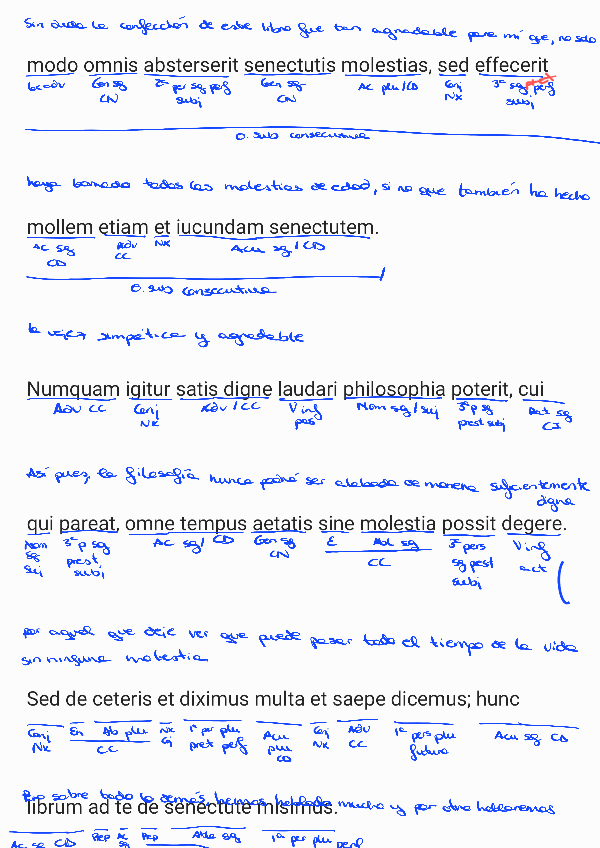 Sin duda la confección de este libro fue tan agradable para mí que, no solo
modo omnis absterserit senectutis molestias, sed effecerit
loc adv Gen sg 2ª per sg perf Gen sg Ac plu/CD Conj 3ª sg perf
CN subj CN NX subj
O. sub consecutiva
haya borrado todas las molestias de edad, si no que también ha hecho
mollem etiam et iucundam senectutem.
Ac sg Adv NX Acu sg/CD
CD CC
O. sub consecutiva
la vejez simpática y agradable
Numquam igitur satis digne laudari philosophia poterit, cui
Adv CC Conj Adv/CC V inf Nom sg/suj 3ª p sg Dat sg
NX pas prest subj CI
Así pues, la filosofía nunca podrá ser alabada de manera suficientemente
digna
qui pareat, omne tempus aetatis sine molestia possit degere.
Nom 3ª p sg Ac sg/ CD Gen sg E Abl sg 3ª pers V inf
sg prest CN CC sg pest act
suj subj subj
por aquel que deje ver que puede pasar todo el tiempo de la vida
sin ninguna molestia
Sed de ceteris et diximus multa et saepe dicemus; hunc
Conj En Ab plu NX 1ª per plu Acu Conj Adv 1ª pers plu Acu sg CD
NX CC Cj pret perf plu NX CC futuro
CD
Pero sobre todo lo demás, hemos hablado mucho y por otro hablaremos
librum ad te de senectute misimus.
Ac sg CD Prep Ac Prep Abla sg 1ª per plu perf
sg